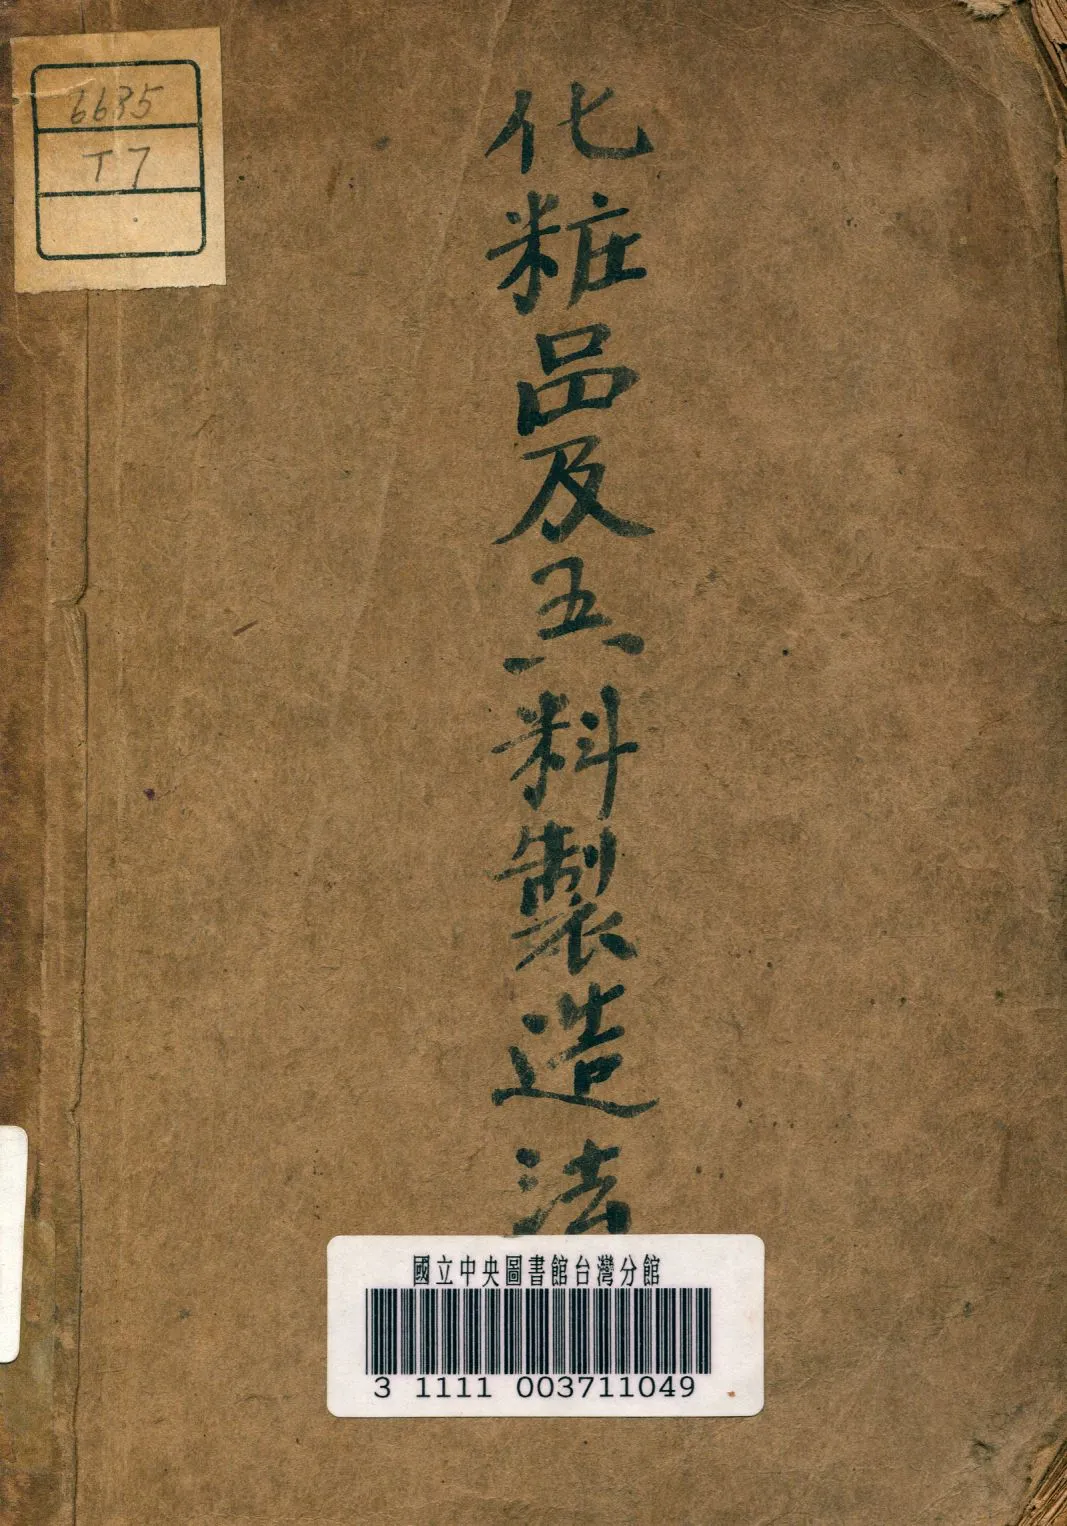 6635
T7
化粧品及其料製造法
國立中央圖書館台灣分館
3 1111 003711049